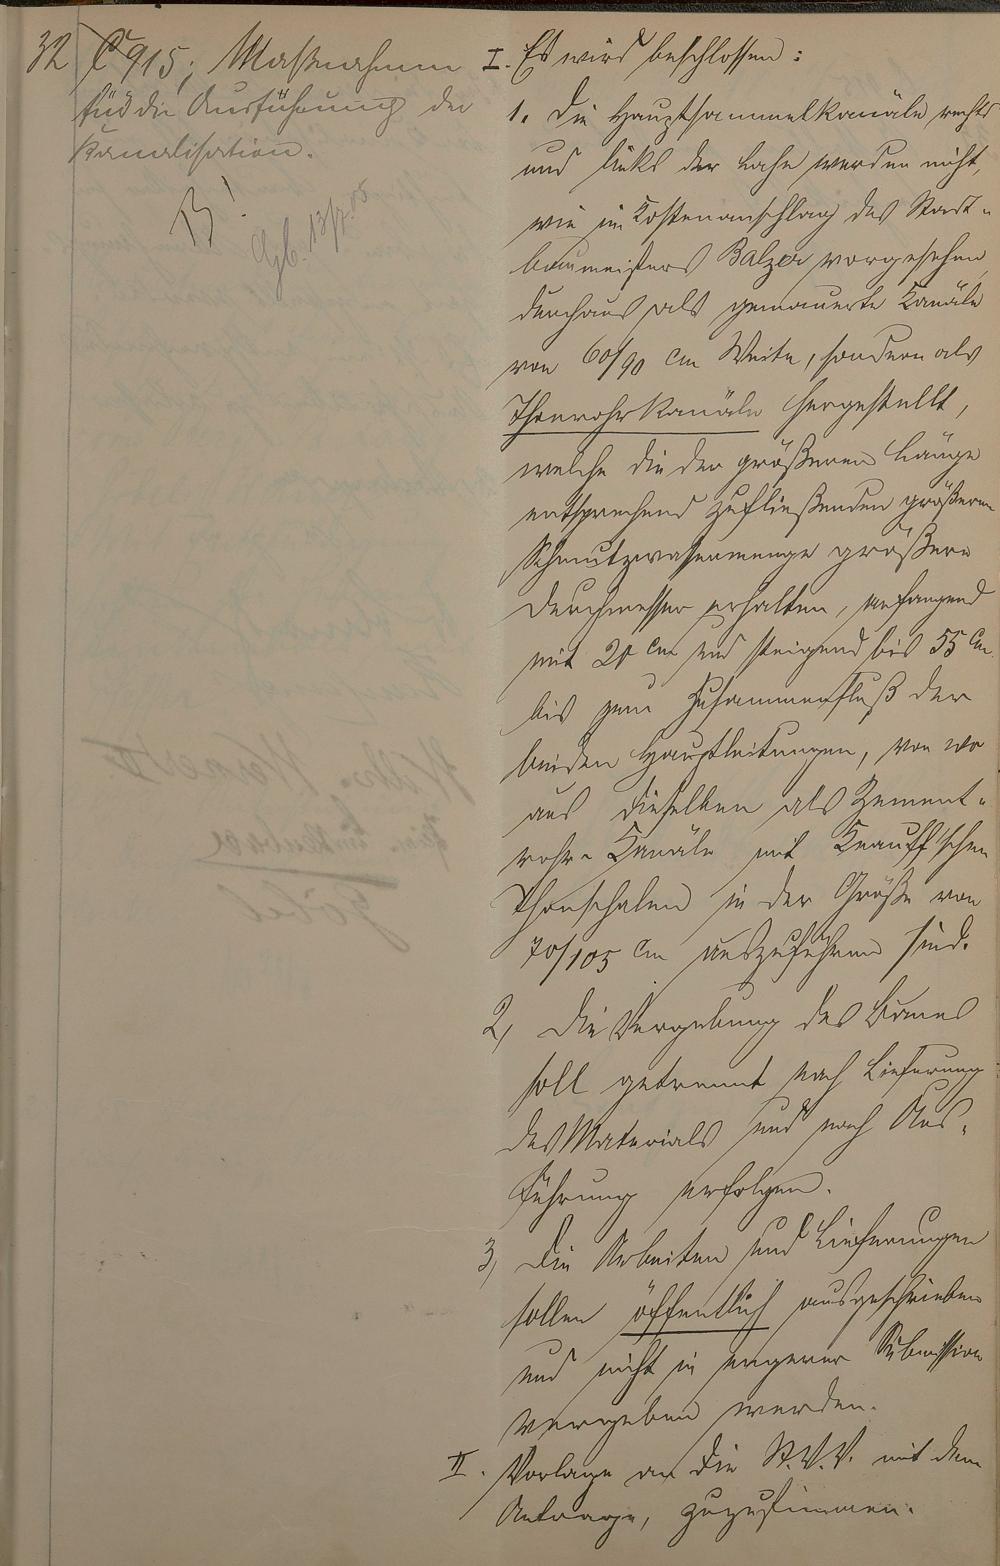 32 C 915; Maßnahmen
für die Ausführung der
Kanalisation.
B!
13/7.05
I. Es wird beschlossen:
1. Die Hauptsammelkanäle rechts
und links der Lahn werden nicht,
wie im Kostenanschlag des Stadt-
baumeisters Balzer vorgesehen,
durchaus als gemauerte Kanäle
von 60/90 cm Weite, sondern als
Thonrohrkanäle hergestellt,
welche die der größeren Länge
entsprechend zufließenden größeren
Schmutzwassermenge größere
Durchmesser erhalten, anfangend
mit 20 cm und steigend bis 55 cm
bis zum Zusammenfluß der
beiden Hauptleitungen, von wo
aus dieselben als Zement-
rohr-Kanäle mit Knauff'schen
Thonschalen in der Größe von
70/105 cm auszuführen sind.
2, Die Vergebung des Baues
soll getrennt nach Lieferung
des Materials und nach Aus-
führung erfolgen.
3, Die Arbeiten und Lieferungen
sollen öffentlich ausgeschrieben
und nicht in engerer Submission
vergeben werden.
II. Vorlage an die St.V.V. mit dem
Antrage, zuzustimmen.